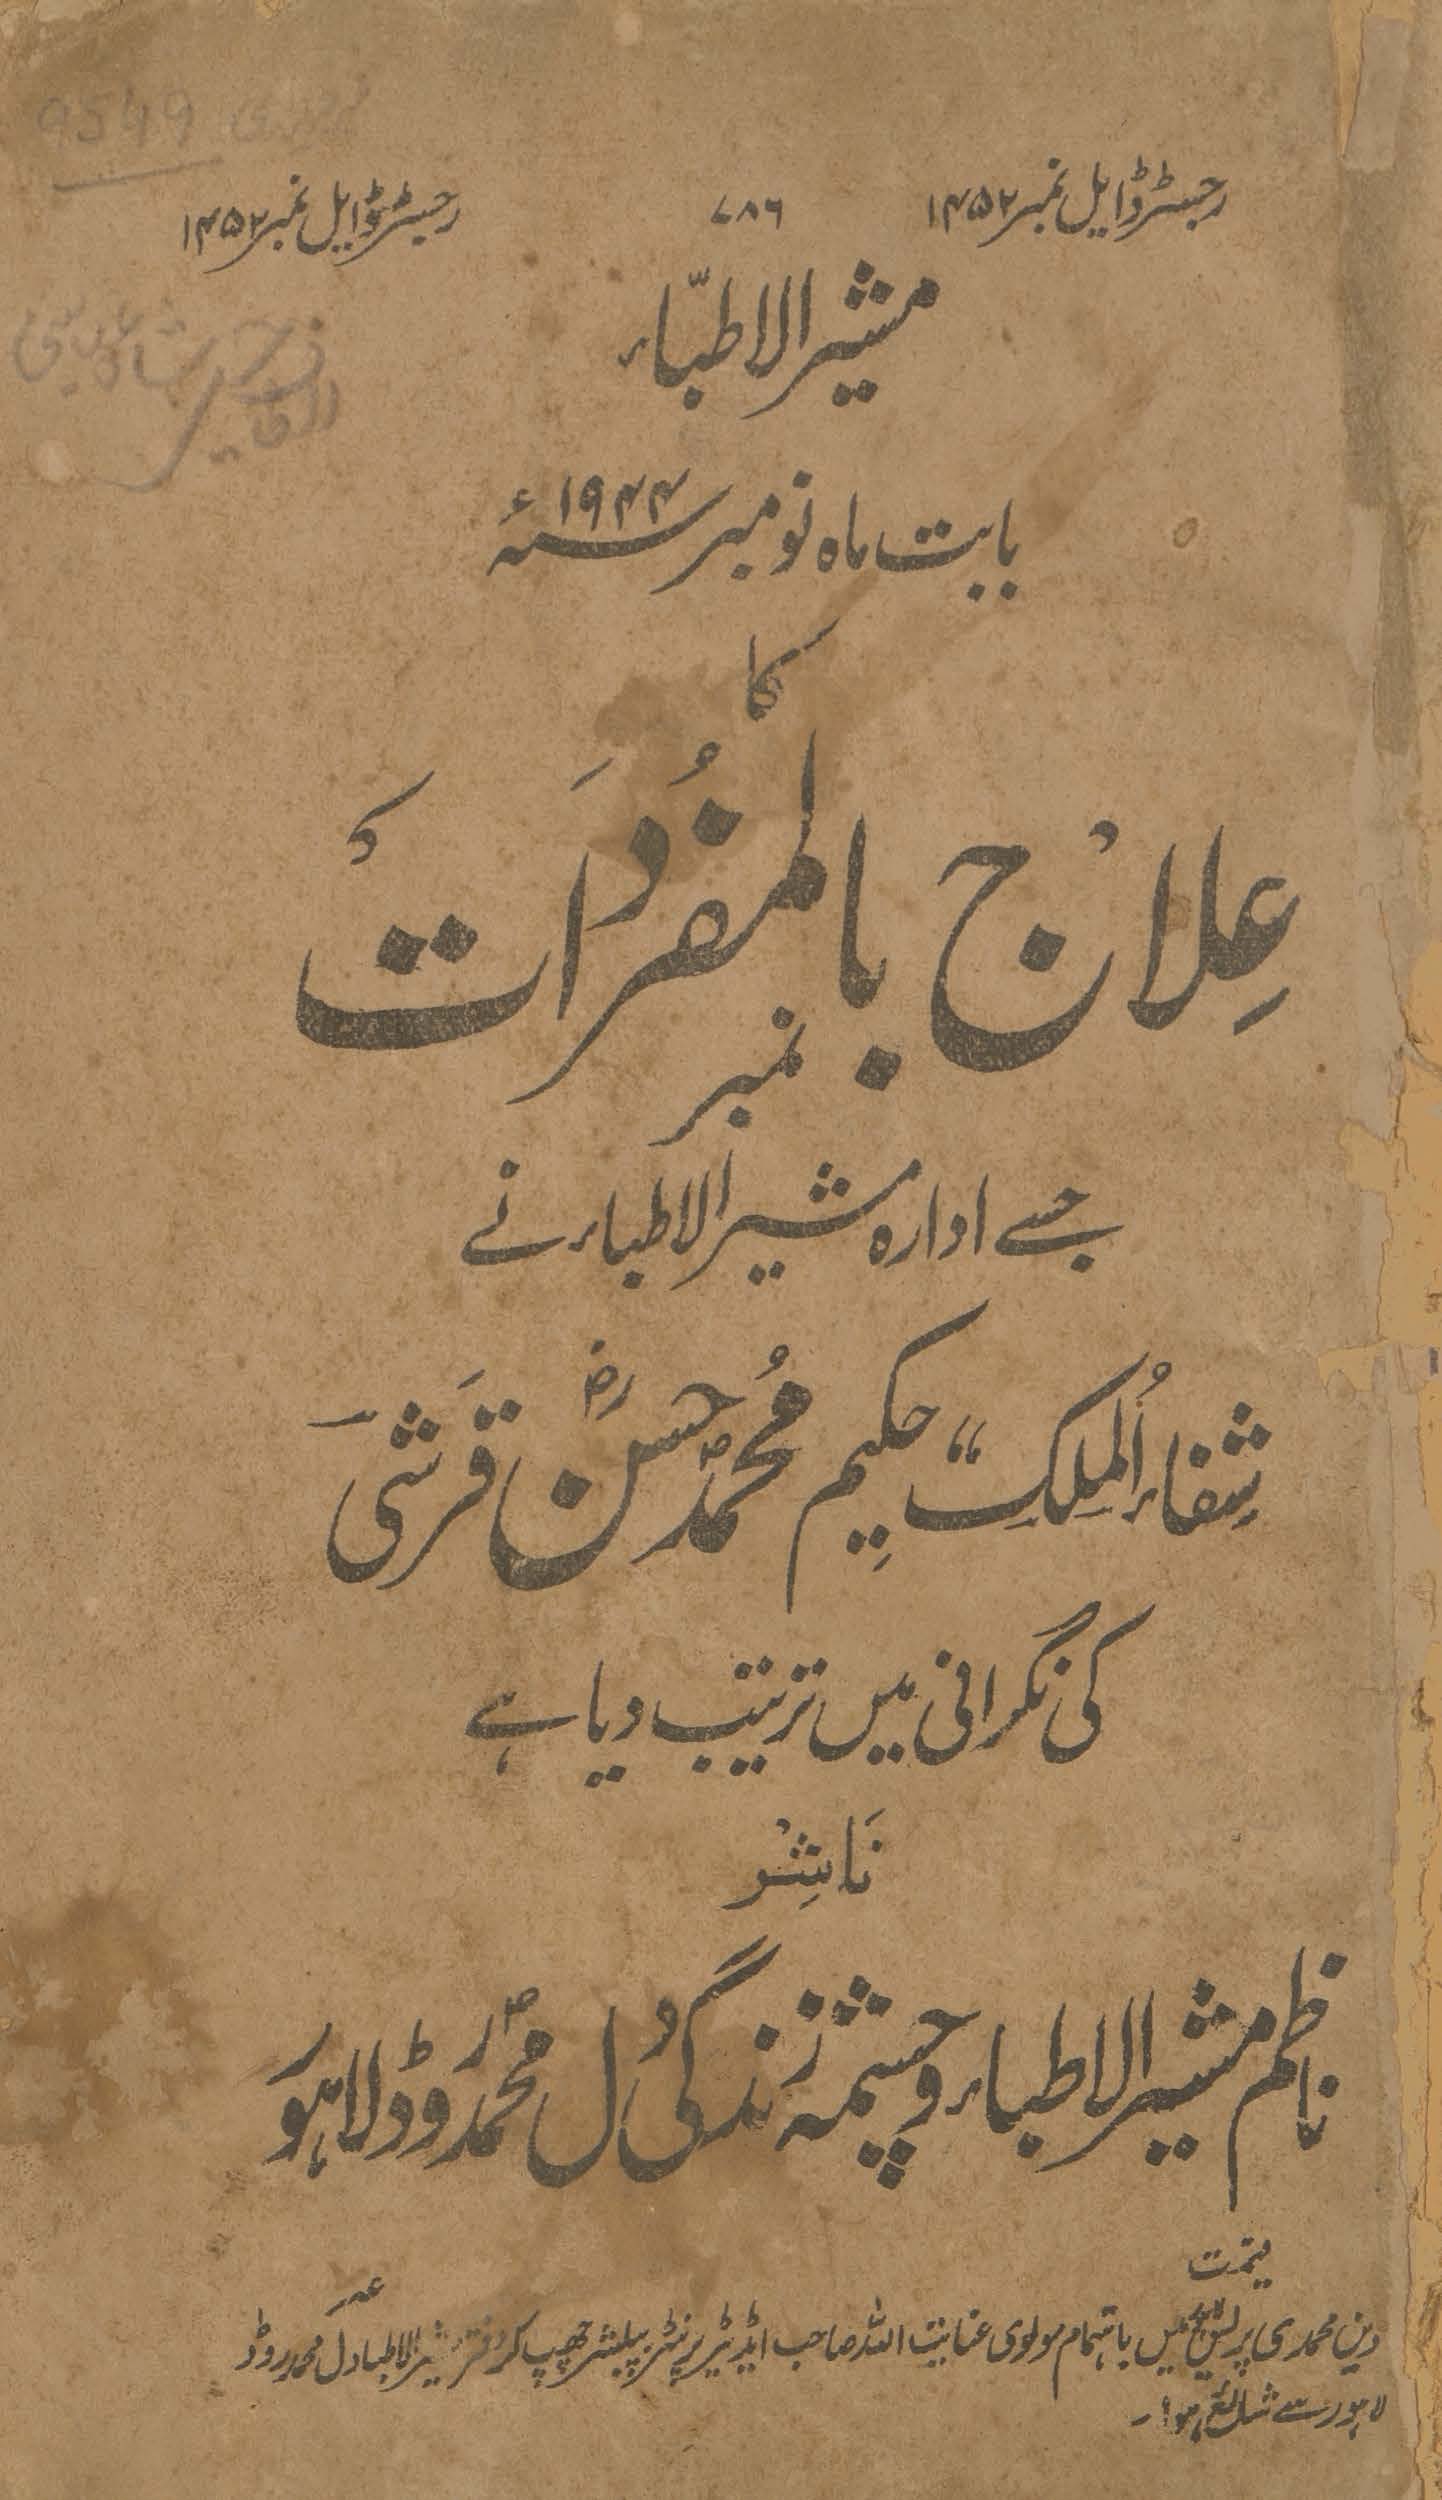 9549
رجسٹرڈ ایل نمبر ۱۴۵۲ ۷۸۶ رجسٹرڈ ایل نمبر ۱۴۵۲
مشیر الاطبّاء
بابت ماہ نومبر ۱۹۴۴ء
کا
عِلاج بالمفُردَات
نمبر
جسے ادارہ مشیر الاطباء نے
شِفاءُ المُلِک حکِیم مُحمدؐ حسنؓ قَرشی
کی نگرانی میں ترتیب دیا ہے
نَاشِر
ناظم مشیر الاطباء و چشمہ زندگی دل محمدؐ روڈ لاہور
قیمت عہ
دین محمدی پریس میں باہتمام مولوی عنایت اللہ صاحب ایڈیٹر پرنٹر پبلیشر چھپ کر دفتر مشیر الاطبا دل محمد روڈ
لاہور سے شائع ہوا۔